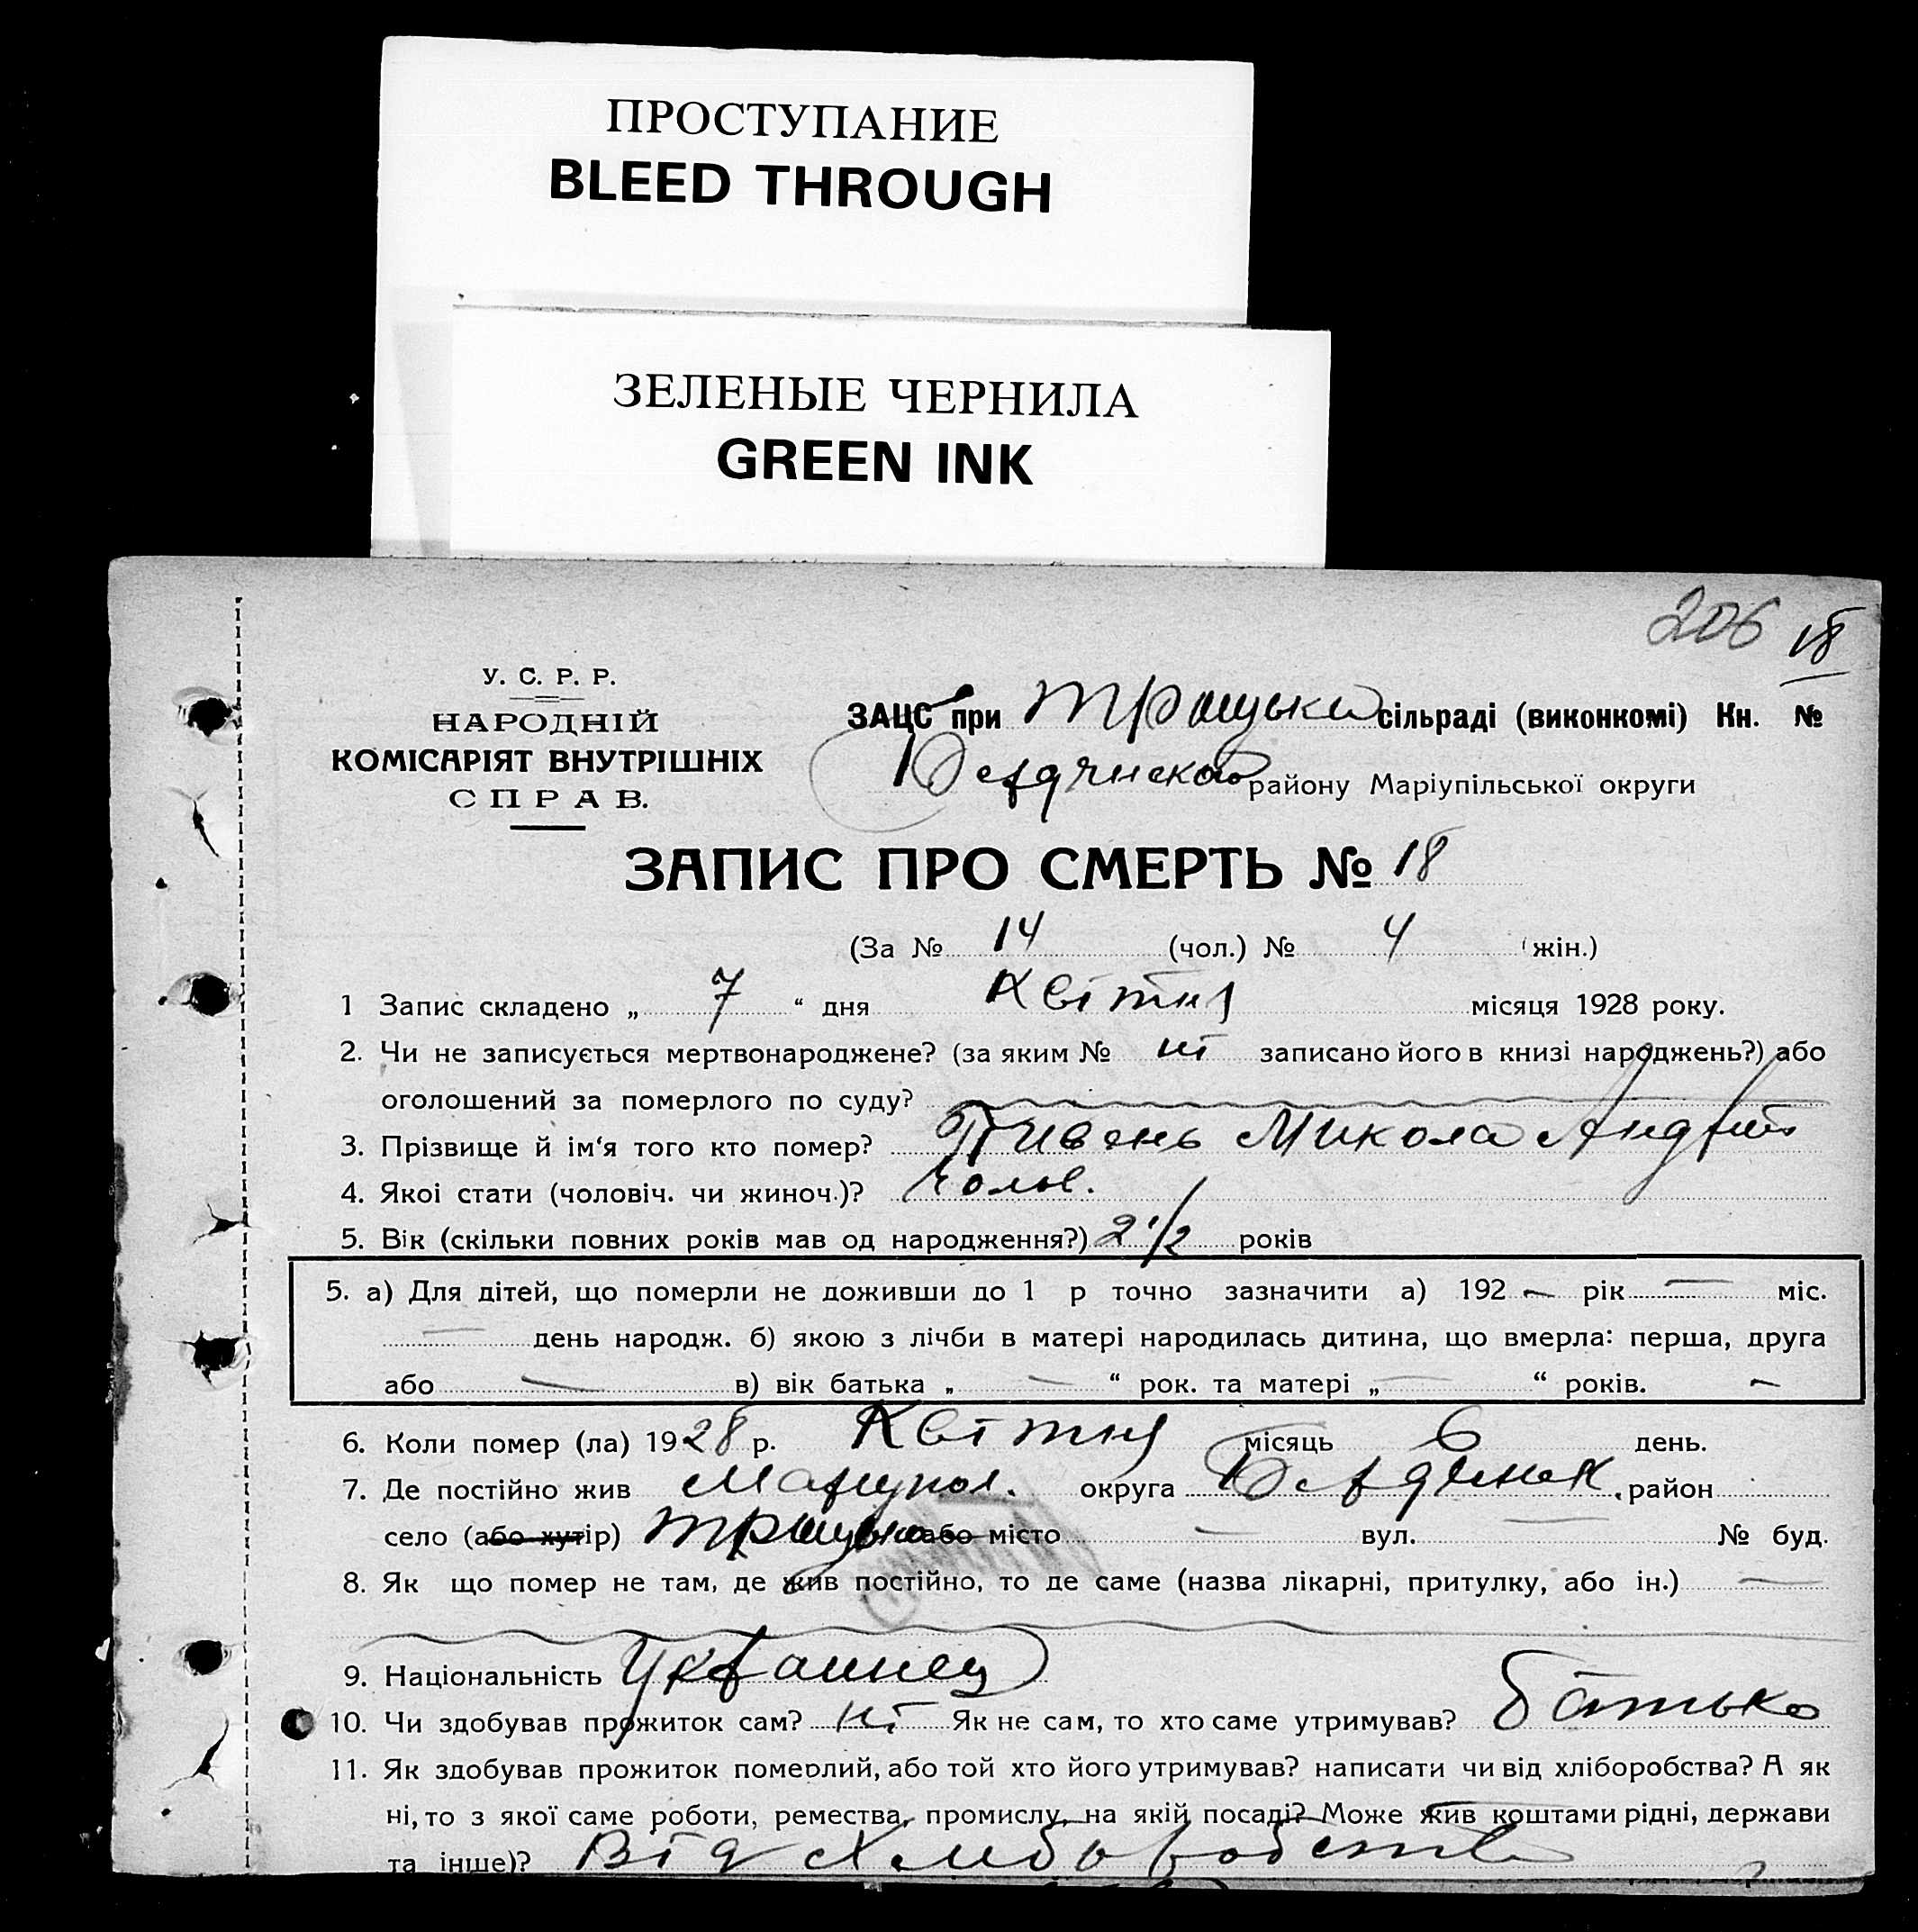 ПРОСТУПАНИЕ
BLEED THROUGH
ЗЕЛЕНЫЕ ЧЕРНИЛА
GREEN INK
206 18
У. С. Р. Р.
НАРОДНІЙ
КОМІСАРІЯТ ВНУТРІШНІХ
СПРАВ.
ЗАЦС при Троцьки сільраді (виконкомі) Кн. №
району Маріупільської округи
ЗАПИС ПРО СМЕРТЬ № 18
(За № 14 (чол.) № 4 (жін.)
1 Запис складено „ 7 “ дня Квітня місяця 1928 року.
2. Чи не записується мертвонароджене? (за яким № ні записано його в книзі народжень?) або
оголошений за померлого по суду?
3. Прізвище й ім‘я того кто помер? Пивень Микола Андрій
4. Якоі стати (чоловіч. чи жиноч.)? Чолов.
5. Вік (скільки повних років мав од народження?) 2 1/2 років
5. а) Для дітей, що померли не доживши до 1 р точно зазначити а) 192 — рік — міс.
— день народж. б) якою з лічби в матері народилась дитина, що вмерла: перша, друга
або — в) вік батька „ — “ рок. та матері „ — “ років. —
6. Коли помер (ла) 1928 р. Квітня місяць 6 день.
7. Де постійно жив Маріупол. округа Бердянськ. район
село (або хутір) або місто — вул. — № буд.
8. Як що помер не там, де жив постійно, то де саме (назва лікарні, притулку, або ін.) —
9. Національність Украинец
10. Чи здобував прожиток сам? ні Як не сам, то хто саме утримував? батько
11. Як здобував прожиток померлий, або той хто його утримував? написати чи від хліборобства? А як
ні, то з якої саме роботи, ремества, промислу, на якій посаді? Може жив коштами рідні, держави
та інше)? Від Хлиборобства